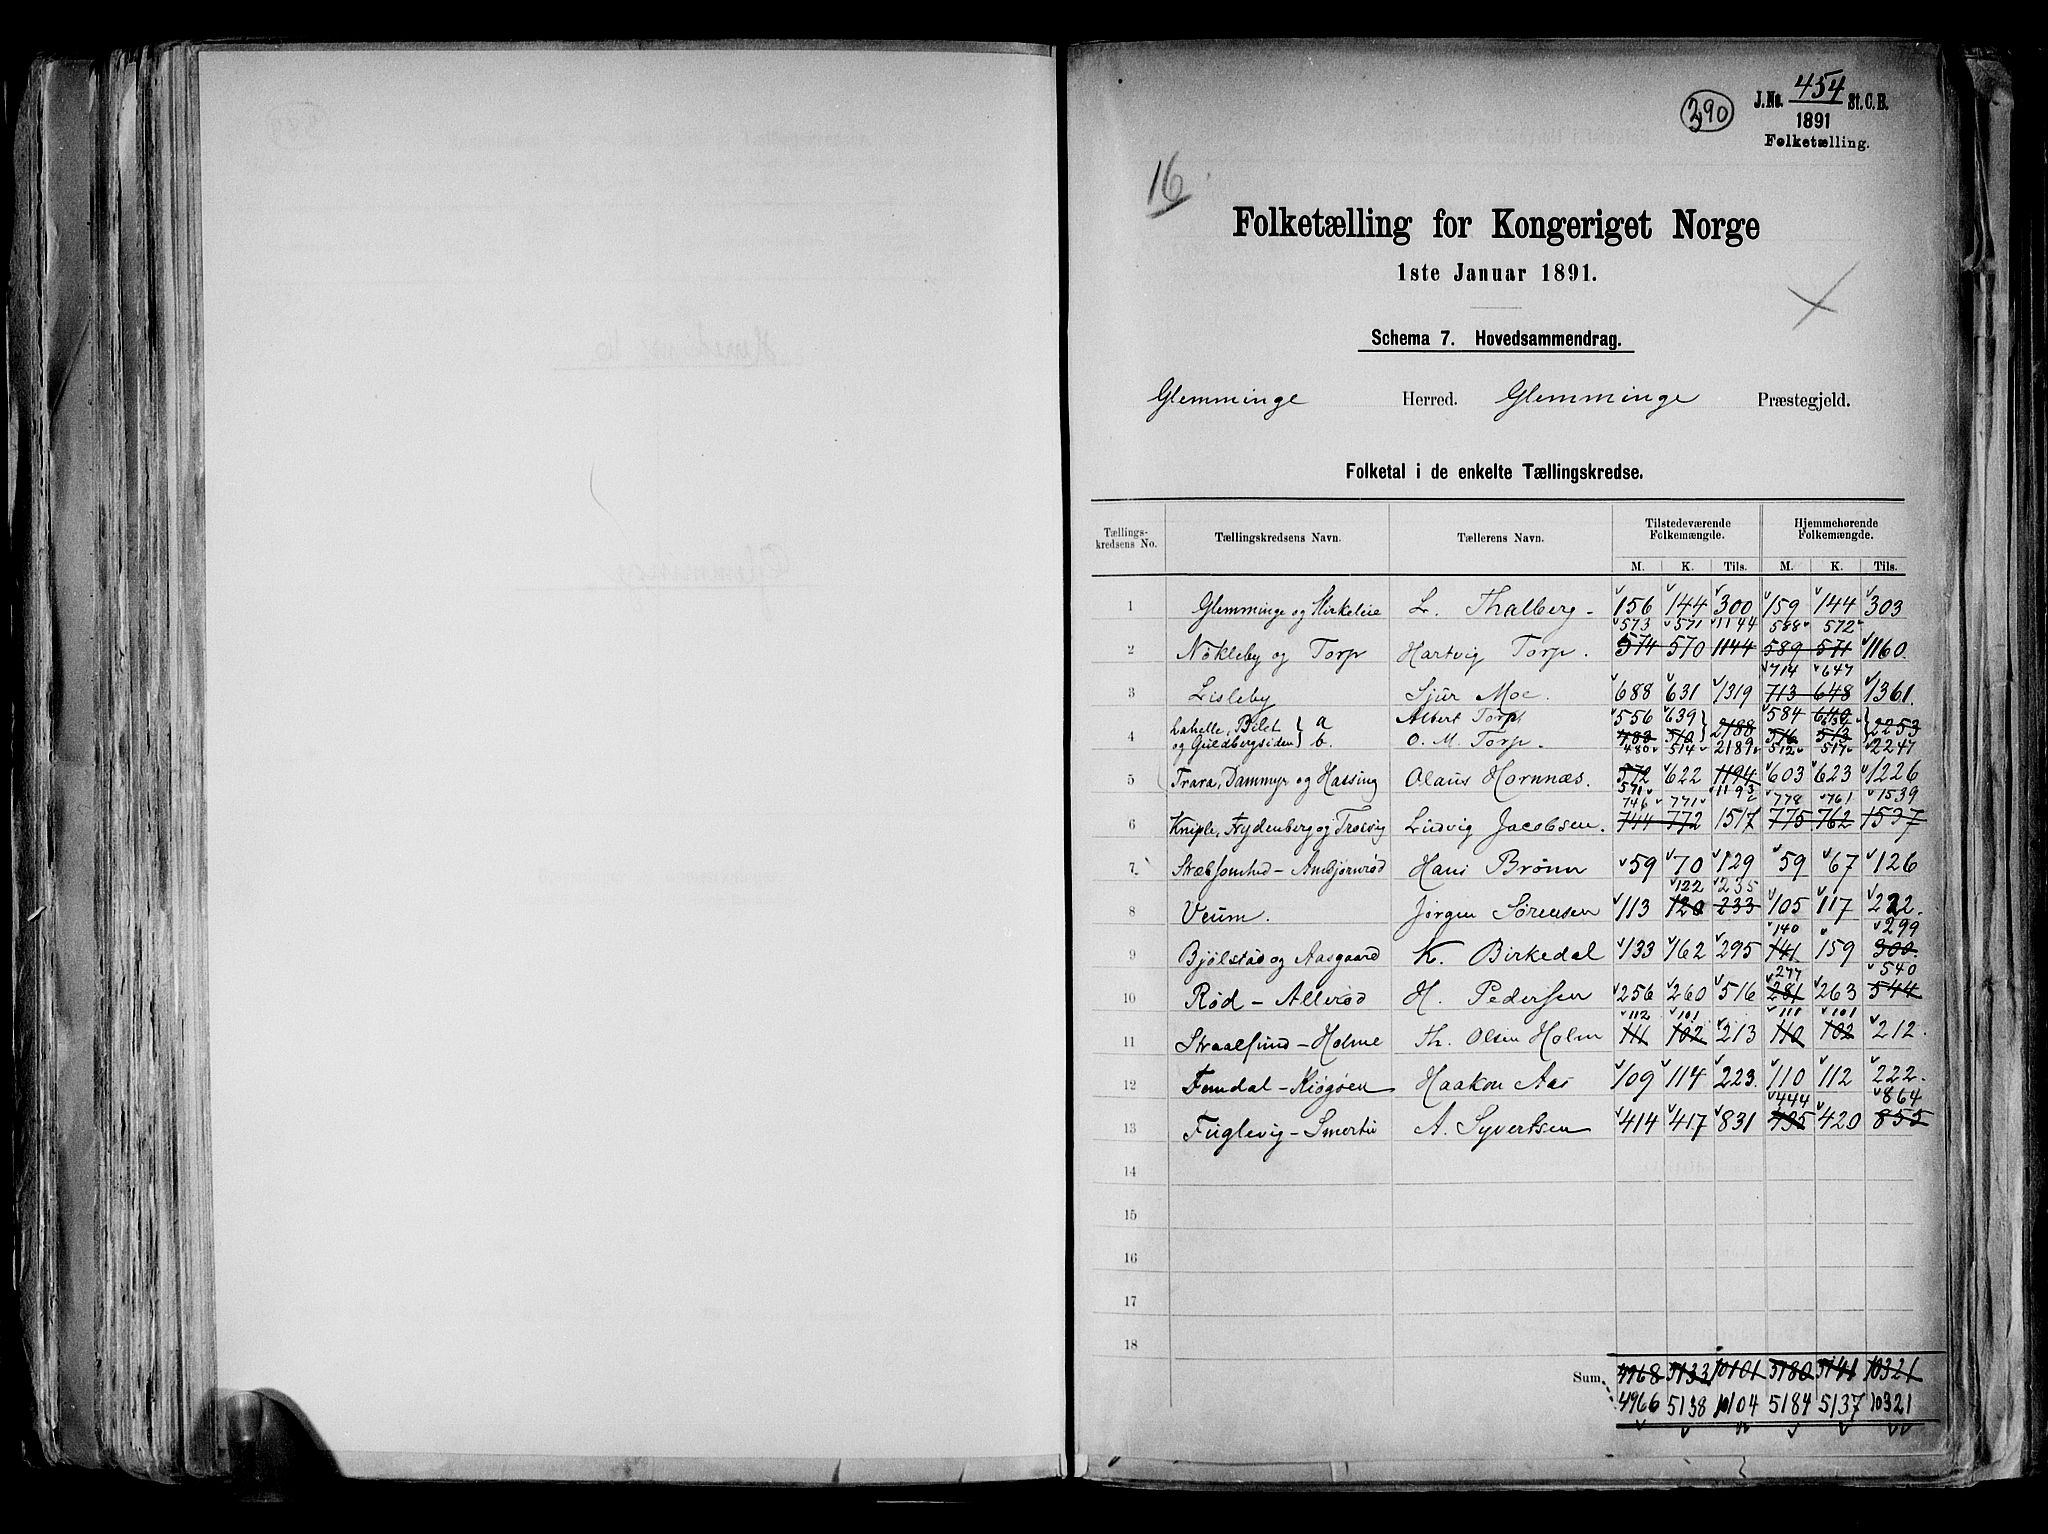 390
J.No. 454 St.C.B.
1891
Folketælling.
16
Folketælling for Kongeriget Norge
1ste Januar 1891.
Schema 7. Hovedsammendrag.
Glemminge Herred. Glemminge Præstegjeld.
Folketal i de enkelte Tællingskredse.
Tællings-kredsens No. Tællingskredsens Navn. Tællerens Navn. Tilstedeværende Folkemængde. Hjemmehørende Folkemængde.
M. K. Tils. M. K. Tils.
1 Glemminge og Kirkeleie L. Thalberg 156 144 300 159 144 303
573 571 1144 588 572
2 Nökleby og Torp Hartvig Torp. 574 570 1144 589 571 1160
714 647
3 Lisleby Sjur Moe. 688 631 1319 713 648 1361
Lahelle, Bilet a Albert Torp 556 639 2188 584 640 2253
4 og Guldbergsiden b. O. M. Torp. 483 510 576 513
480 514 2189 512 517 2247
5 Trara, Dammyr og Hassing Olaus Hornnæs. 572 622 1194 603 623 1226
571 1193
746 771 778 761 1539
6 Kniple, Frydenberg og Trosvig Ludvig Jacobsen. 744 772 1517 775 762 1537
7 Stræbsomhed - Ambjørnrød Hans Brønn 59 70 129 59 67 126
122 235
8 Veum. Jørgen Sörensen 113 120 233 105 117 222.
140 299
9 Bjølstad og Aasgaard K. Birkedal 133 162 295 141 159 300
277 540
10 Rød - Allerød H. Pedersen 256 260 516 281 263 544
112 101 111 101
11 Straalsund - Holme Th. Olsen Holm 111 102 213 110 102 212
12 Femdal - Kiøgøen Haakon Aas 109 114 223 110 112 222
444 864
13 Fuglevig - Smertu A. Syvertsen 414 417 831 435 420 855
14
15
16
17
18
Sum 4968 5133 10101 5180 5141 10321
4966 5138 10104 5184 5137 10321